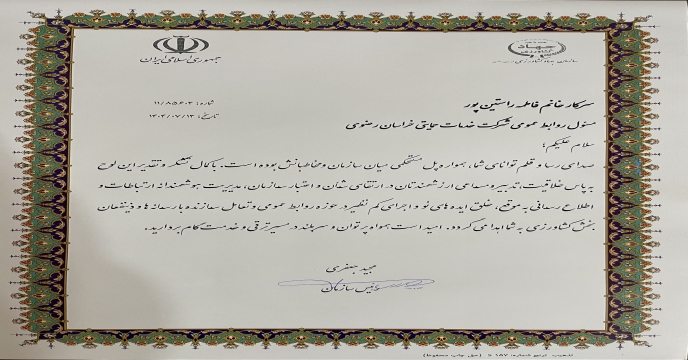 جمهوری اسلامی ایران
جهاد کشاورزی
شماره: ۱۱/۸۵۶۰۲
تاریخ: ۱۴۰۴/۰۷/۱۳
سرکار خانم فاطمه راستین پور
مسئول روابط عمومی شرکت خدمات حمایتی خراسان رضوی
سلام علیکم؛
صدای رسا و قلم توانای شما، همواره پل مستحکمی میان سازمان و مخاطبانش بوده است. با کمال تشکر و تقدیر این لوح
به پاس خلاقیت، تدبیر و مساعی ارزشمندتان در ارتقای شأن و اعتبار سازمان، مدیریت هوشمندانه ارتباطات و
اطلاع رسانی به موقع، خلق ایده‌های نو و اجرای کم نظیر در حوزه روابط عمومی و تعامل سازنده با رسانه‌ها و ذینفعان
بخش کشاورزی به شما اهدا می گردد. امید است همواره پرتوان و سربلند در مسیر ترقی و خدمت گام بردارید.
مجید جعفری
رئیس سازمان